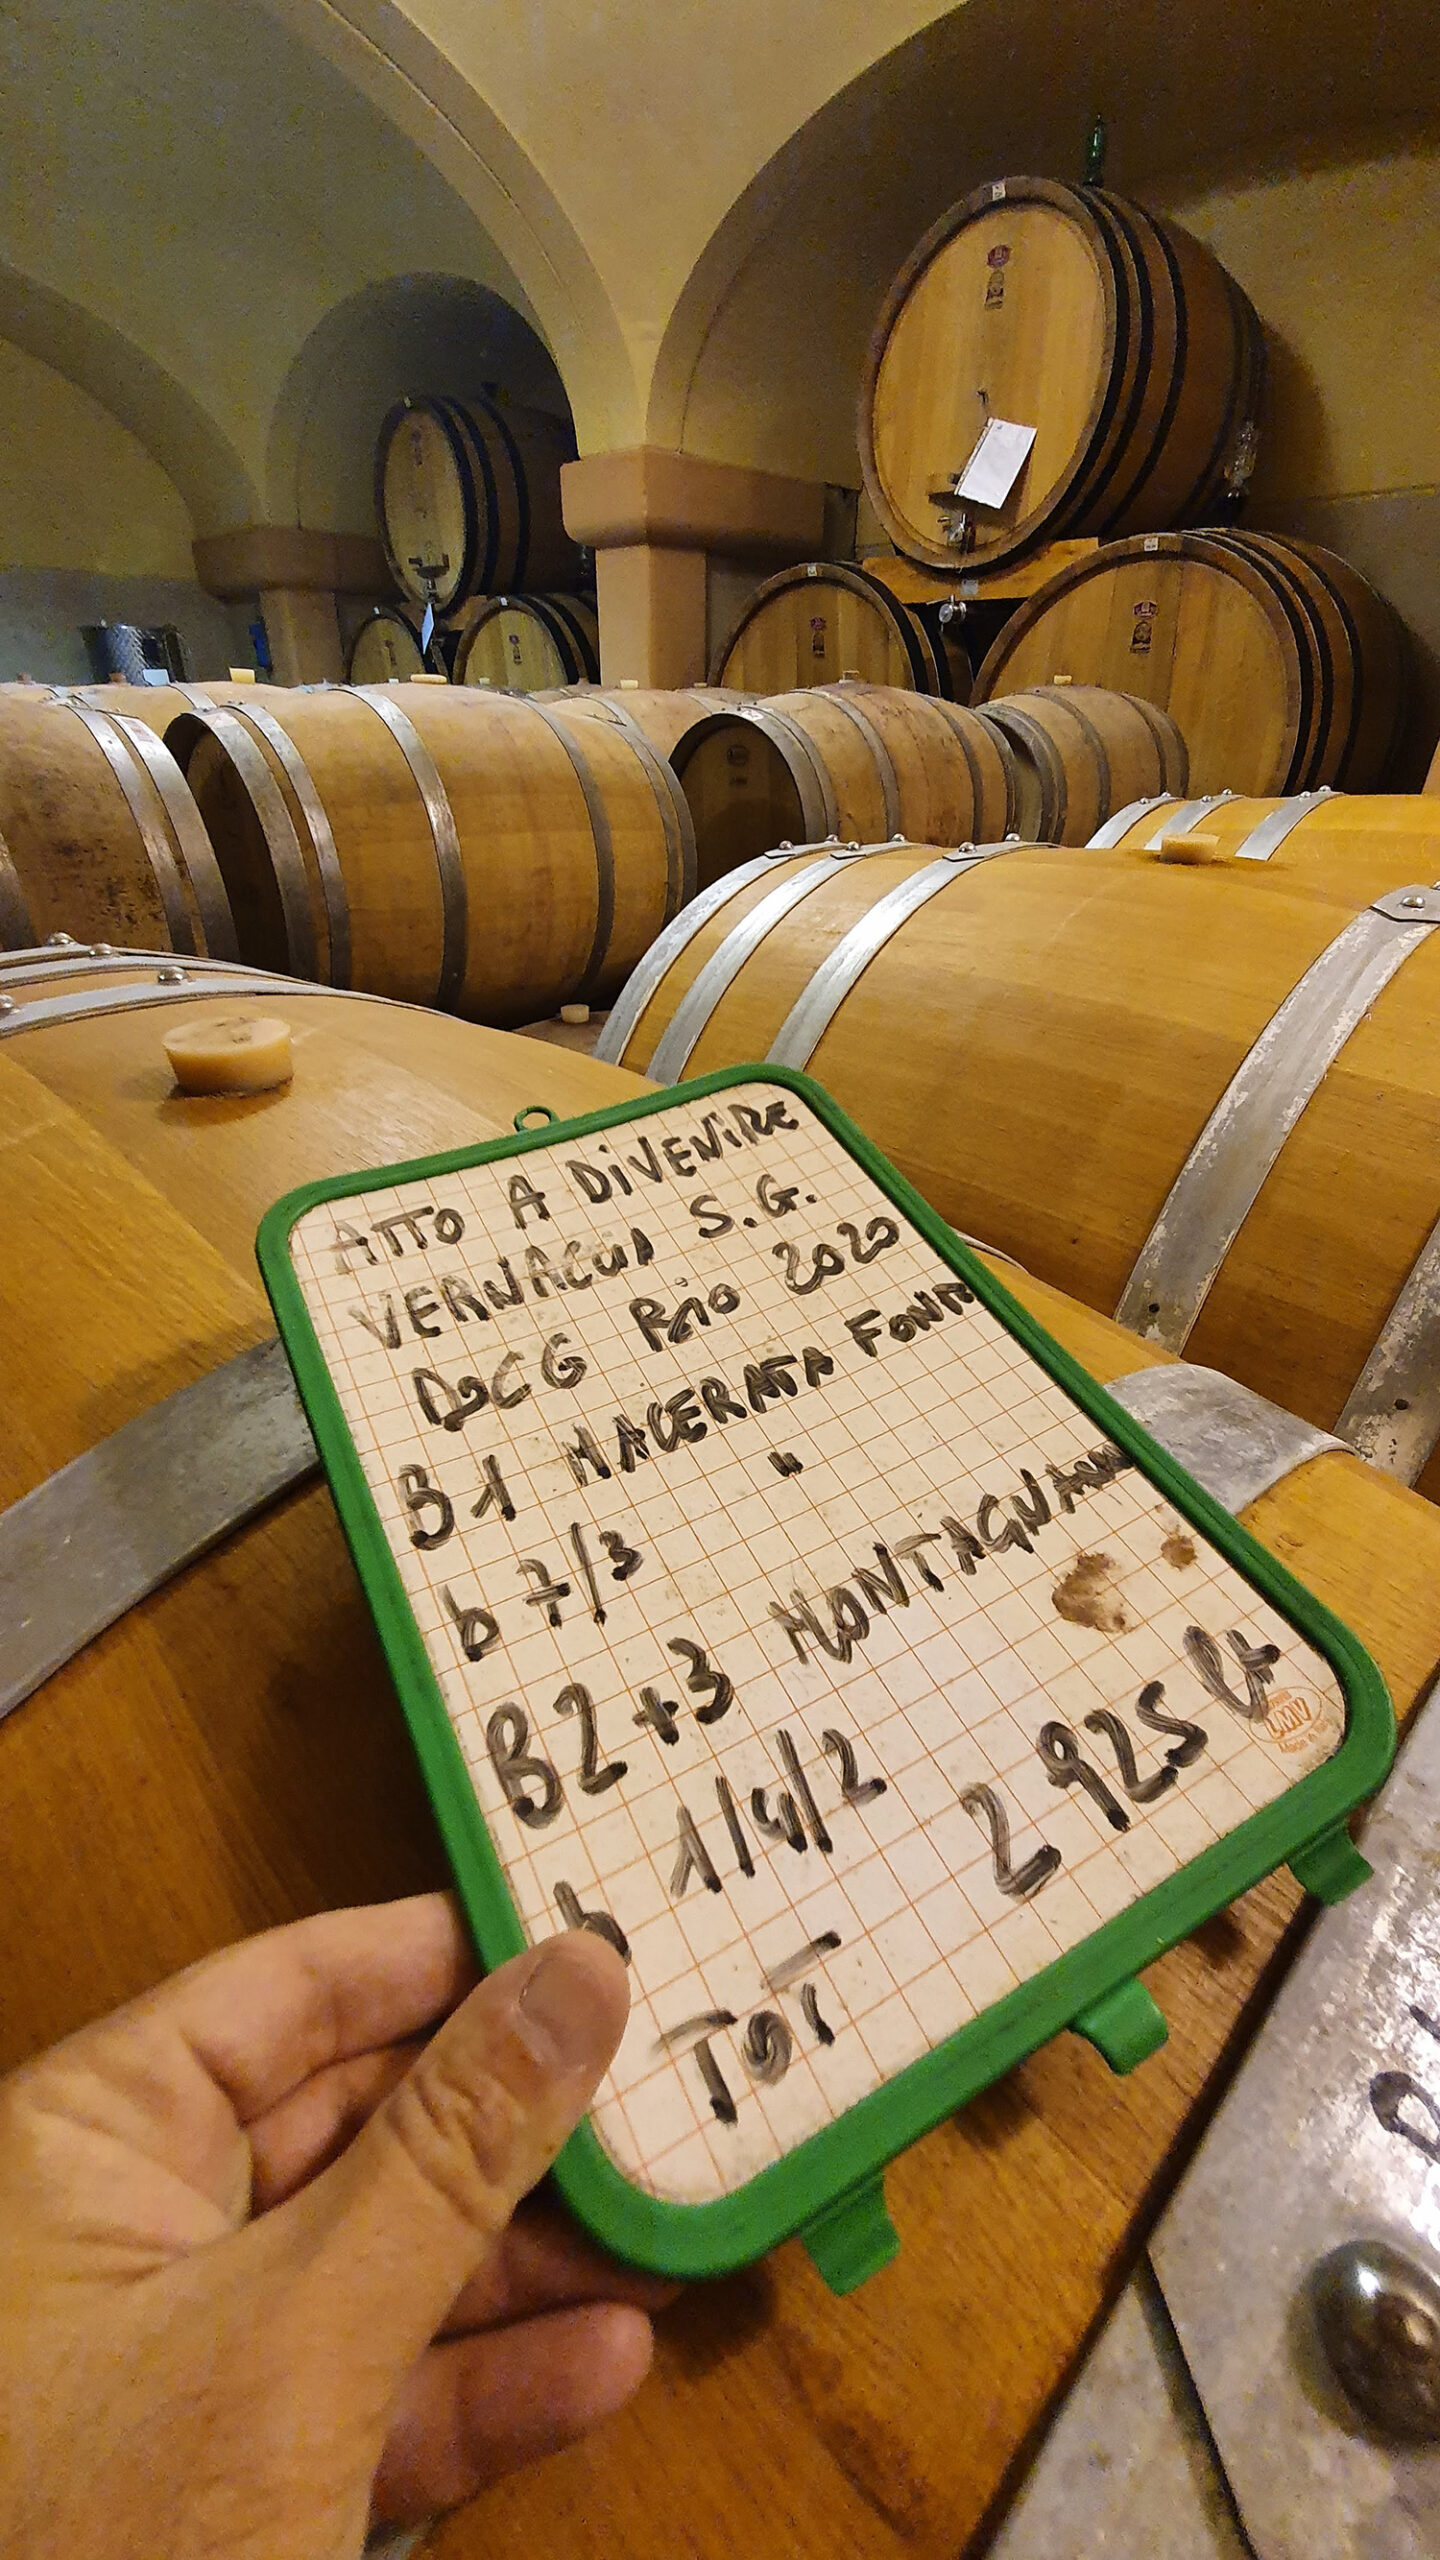 ATTO A DIVENIRE
VERNACCIA S.G.
DOCG 2020
B1 MACERATA
b 7/3 "
B2+3
b 1/4/2
TOT 2925 lt
LMV